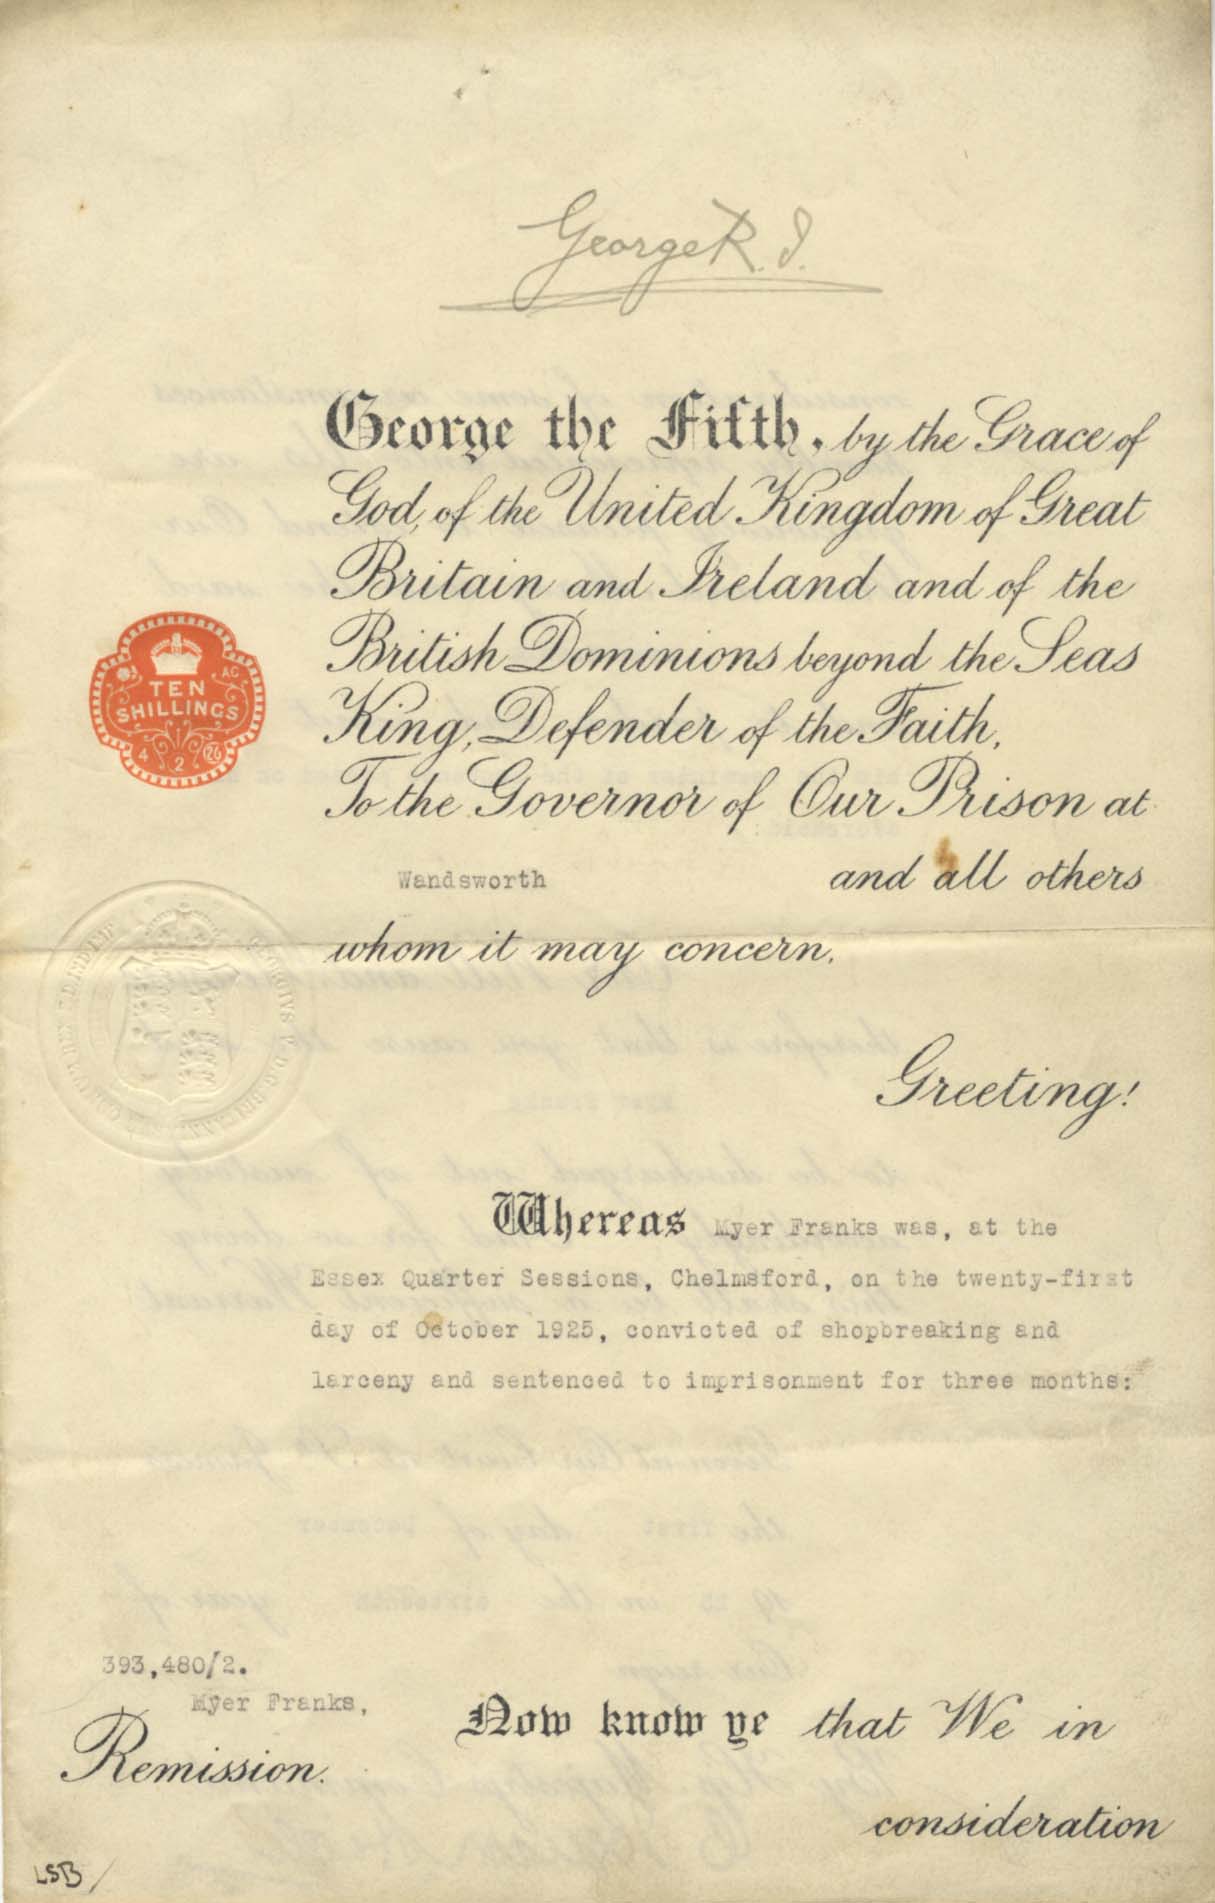 George R.I.
George the Fifth, by the Grace of
God, of the United Kingdom of Great
Britain and Ireland and of the
British Dominions beyond the Seas
King, Defender of the Faith,
To the Governor of Our Prison at
Wandsworth and all others
whom it may concern.
TEN
SHILLINGS
4
2
26
Greeting!
Whereas Myer Franks was, at the
Essex Quarter Sessions, Chelmsford, on the twenty-first
day of October 1925, convicted of shopbreaking and
larceny and sentenced to imprisonment for three months:
393,480/2.
Myer Franks,
Remission.
Now know ye that We in
consideration
LSB/